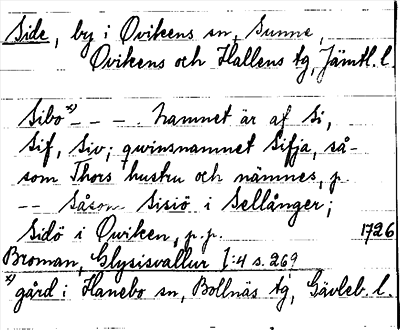 Side, by i Ovikens sn, Sunne,
Ovikens och Hallens tg, Jämtl. l.
Sibo x) - - - hamnet är af Si,
Sif, Siv; qwinsnamnet Sifja, så-
som Thors hustru och nämnes, p.
-- Såsom Sisiö i Sellånger;
Sidö i Owiken, p.p. 1726
Broman, Glysisvallur I:4 s. 269
x) gård i Hanebo sn, Bollnäs tg, Gävleb. l.